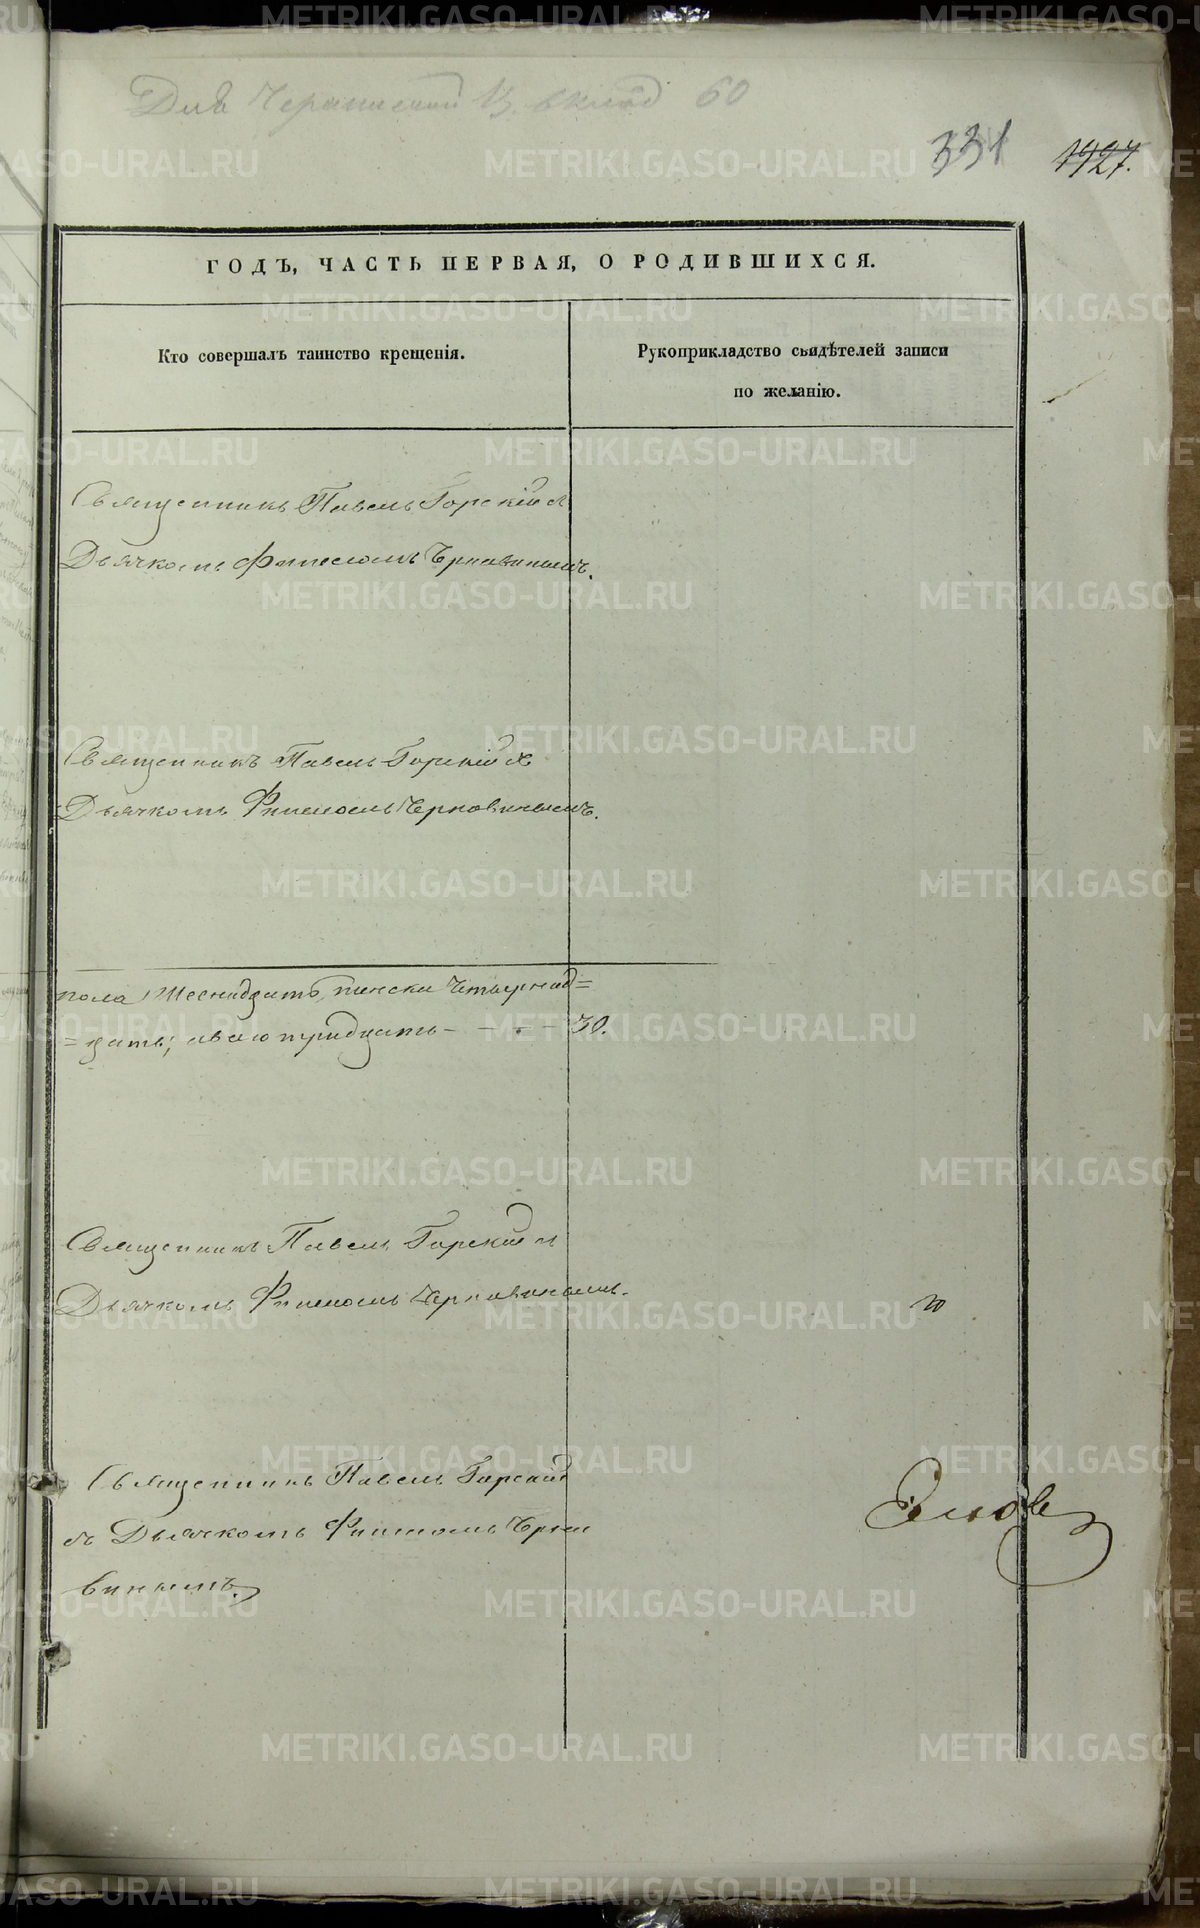 Для Черемисской Ц. вклад 60
331 1927.
ГОДЪ, ЧАСТЬ ПЕРВАЯ, О РОДИВШИХСЯ.
Кто совершалъ таинство крещенія.
Рукоприкладство свидѣтелей записи
по желанію.
Священникъ Павелъ Горскій съ
Дьячкомъ Филимомъ Черновинымъ.
Священникъ Павелъ Горскій съ
Дьячкомъ Черновинымъ.
пола Шеснадцать, женска Четырнад=
=цать; а всего тридцать - - - - 30.
Священникъ Павелъ Горскій съ
Дьячкомъ Черновинымъ.
Священникъ Павелъ Горскій
съ Дьячкомъ Черно
винымъ.
METRIKI.GASO-URAL.RU